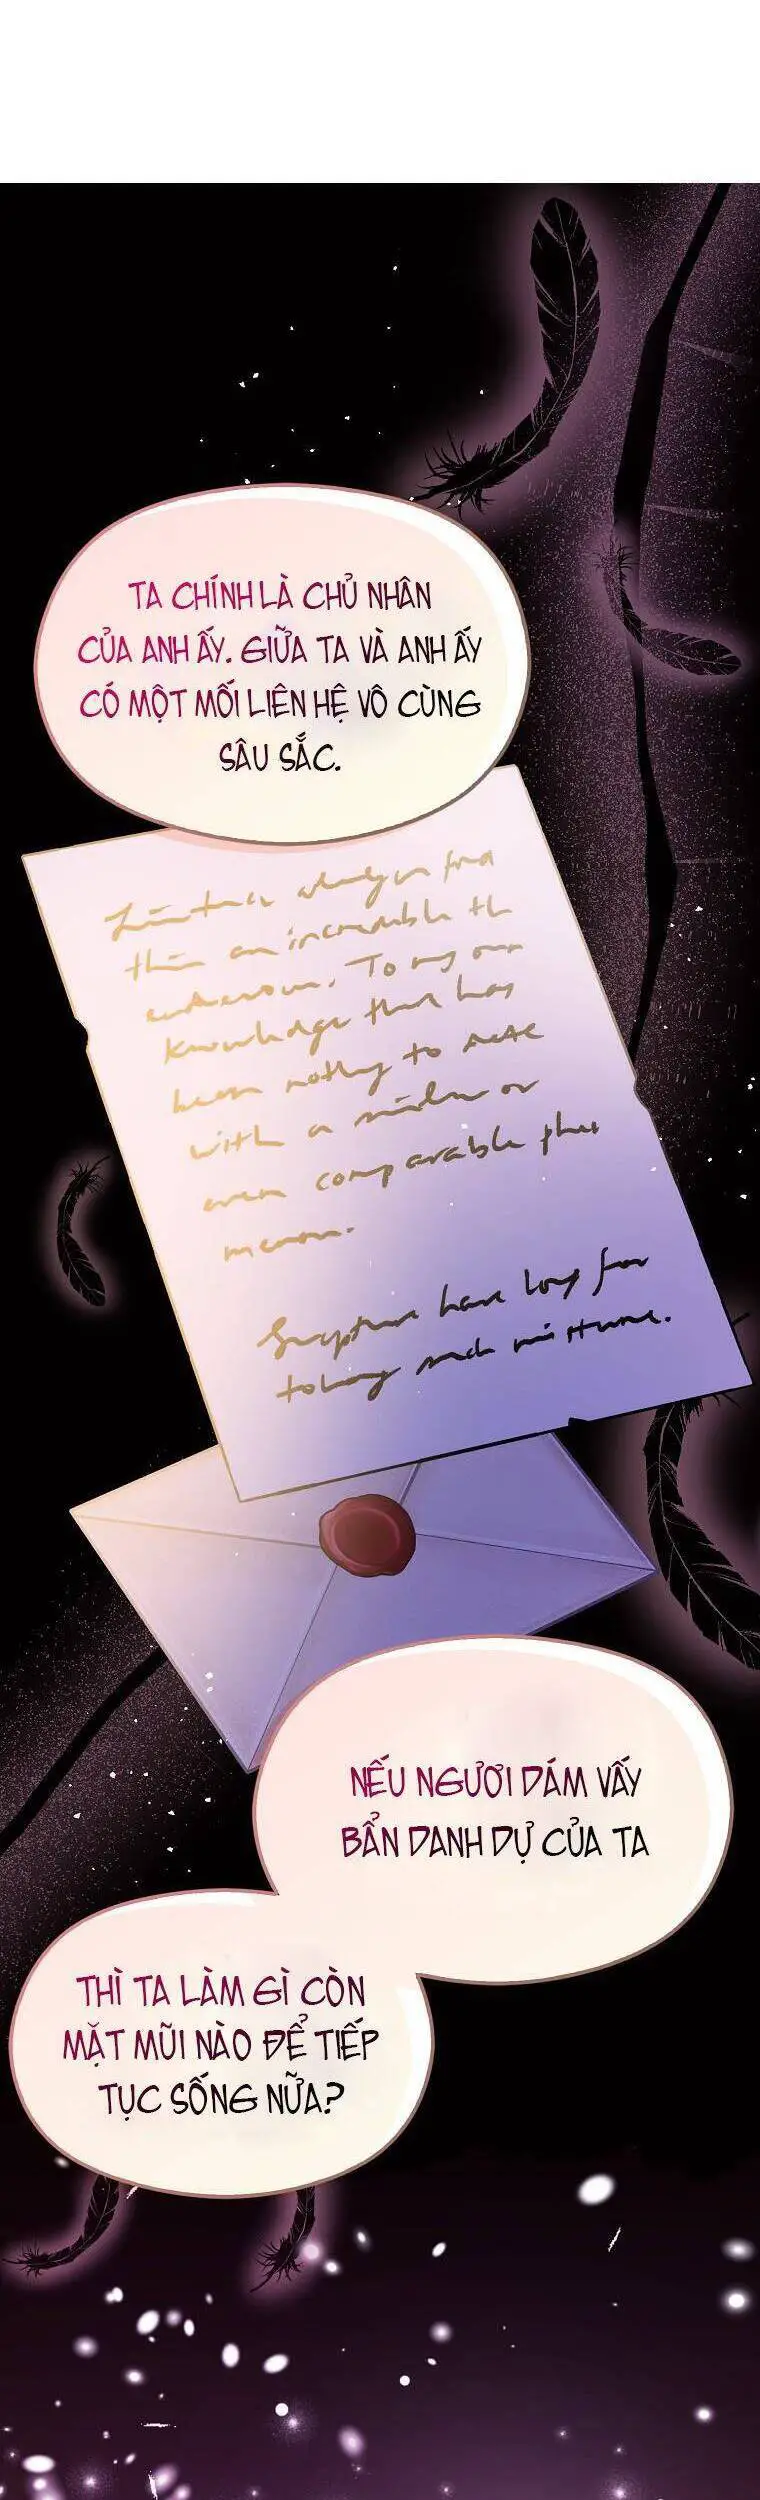 TA CHÍNH LÀ CHỦ NHÂN
CỦA ANH ẤY. GIỮA TA VÀ ANH ẤY
CÓ MỘT MỐI LIÊN HỆ VÔ CÙNG
SÂU SẮC.
found
an incredible th
To my own
knowledge that has
been to
with a or
even comparable
have long for
such mixture.
NẾU NGƯƠI DÁM VẤY
BẨN DANH DỰ CỦA TA
THÌ TA LÀM GÌ CÒN
MẶT MŨI NÀO ĐỂ TIẾP
TỤC SỐNG NỮA?